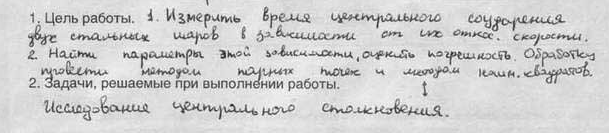 1. Цель работы. 1. Измерить время центрального соударения
двух стальных шаров в зависимости от их относ. скорости.
2. Найти параметры этой зависимости, оценить погрешность. Обработку
провести методом парных точек и методом наим. квадратов.
2. Задачи, решаемые при выполнении работы.
Исследование центрального столкновения.